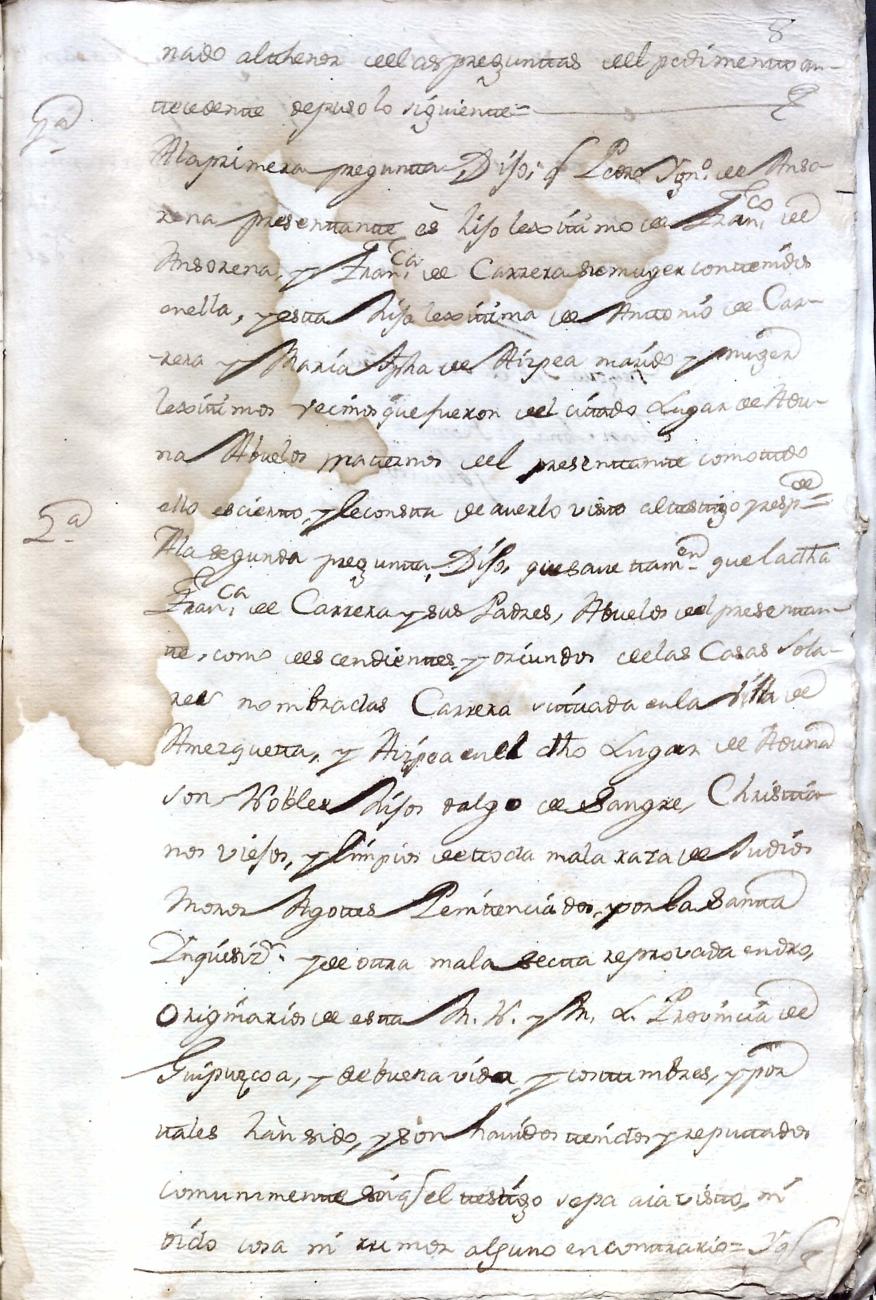 8
nado al thenor de las preguntas del pedimento an-
tecedente depuso lo siguiente=
1ª
A la primera pregunta, Dijo, q Pedro Ygnº. de Anso-
rena presentante, ès hijo lexitimo de Franco. de
Ansorena, y Franca. de Carrera su muger contenidos
en ella, y esta hija lexitima de Antonio de Car-
rera y Maria Jpha de Aizpea marido y muger
lexitimos vecinos que fueron del citado Lugar de Adu-
na Abuelos maternos del presentante como todo
ello es cierto, y le consta de averlo visto al testigo y respde=
2ª
A la segunda pregunta, Dijo, que save tamen. que la dha
Franca. de Carrera y sus Padres, Abuelos del presentan-
te, como descendientes, y oriundos de las Casas Sola-
res nombradas Carrera situada en la Villa de
Amezquetta, y Aizpea en el dho Lugar de Aduna
son Nobles hijos dalgo de Sangre, Christia-
nos viejos, y limpios de toda mala raza de Judios
Moros Agotes Penitenciados, por la Santa
Ynquisizn. y de otra mala secta reprovada en dro,
Originarios de esta M. N. y M. L. Provincia de
Guipuzcoa, y de buena vida, y costumbres, y por
tales hàn sido, y sòn havidos tenidos y reputados
comunmente sin q el testigo sepa aia visto, ni
oido cosa ni rumor alguno en contrario=